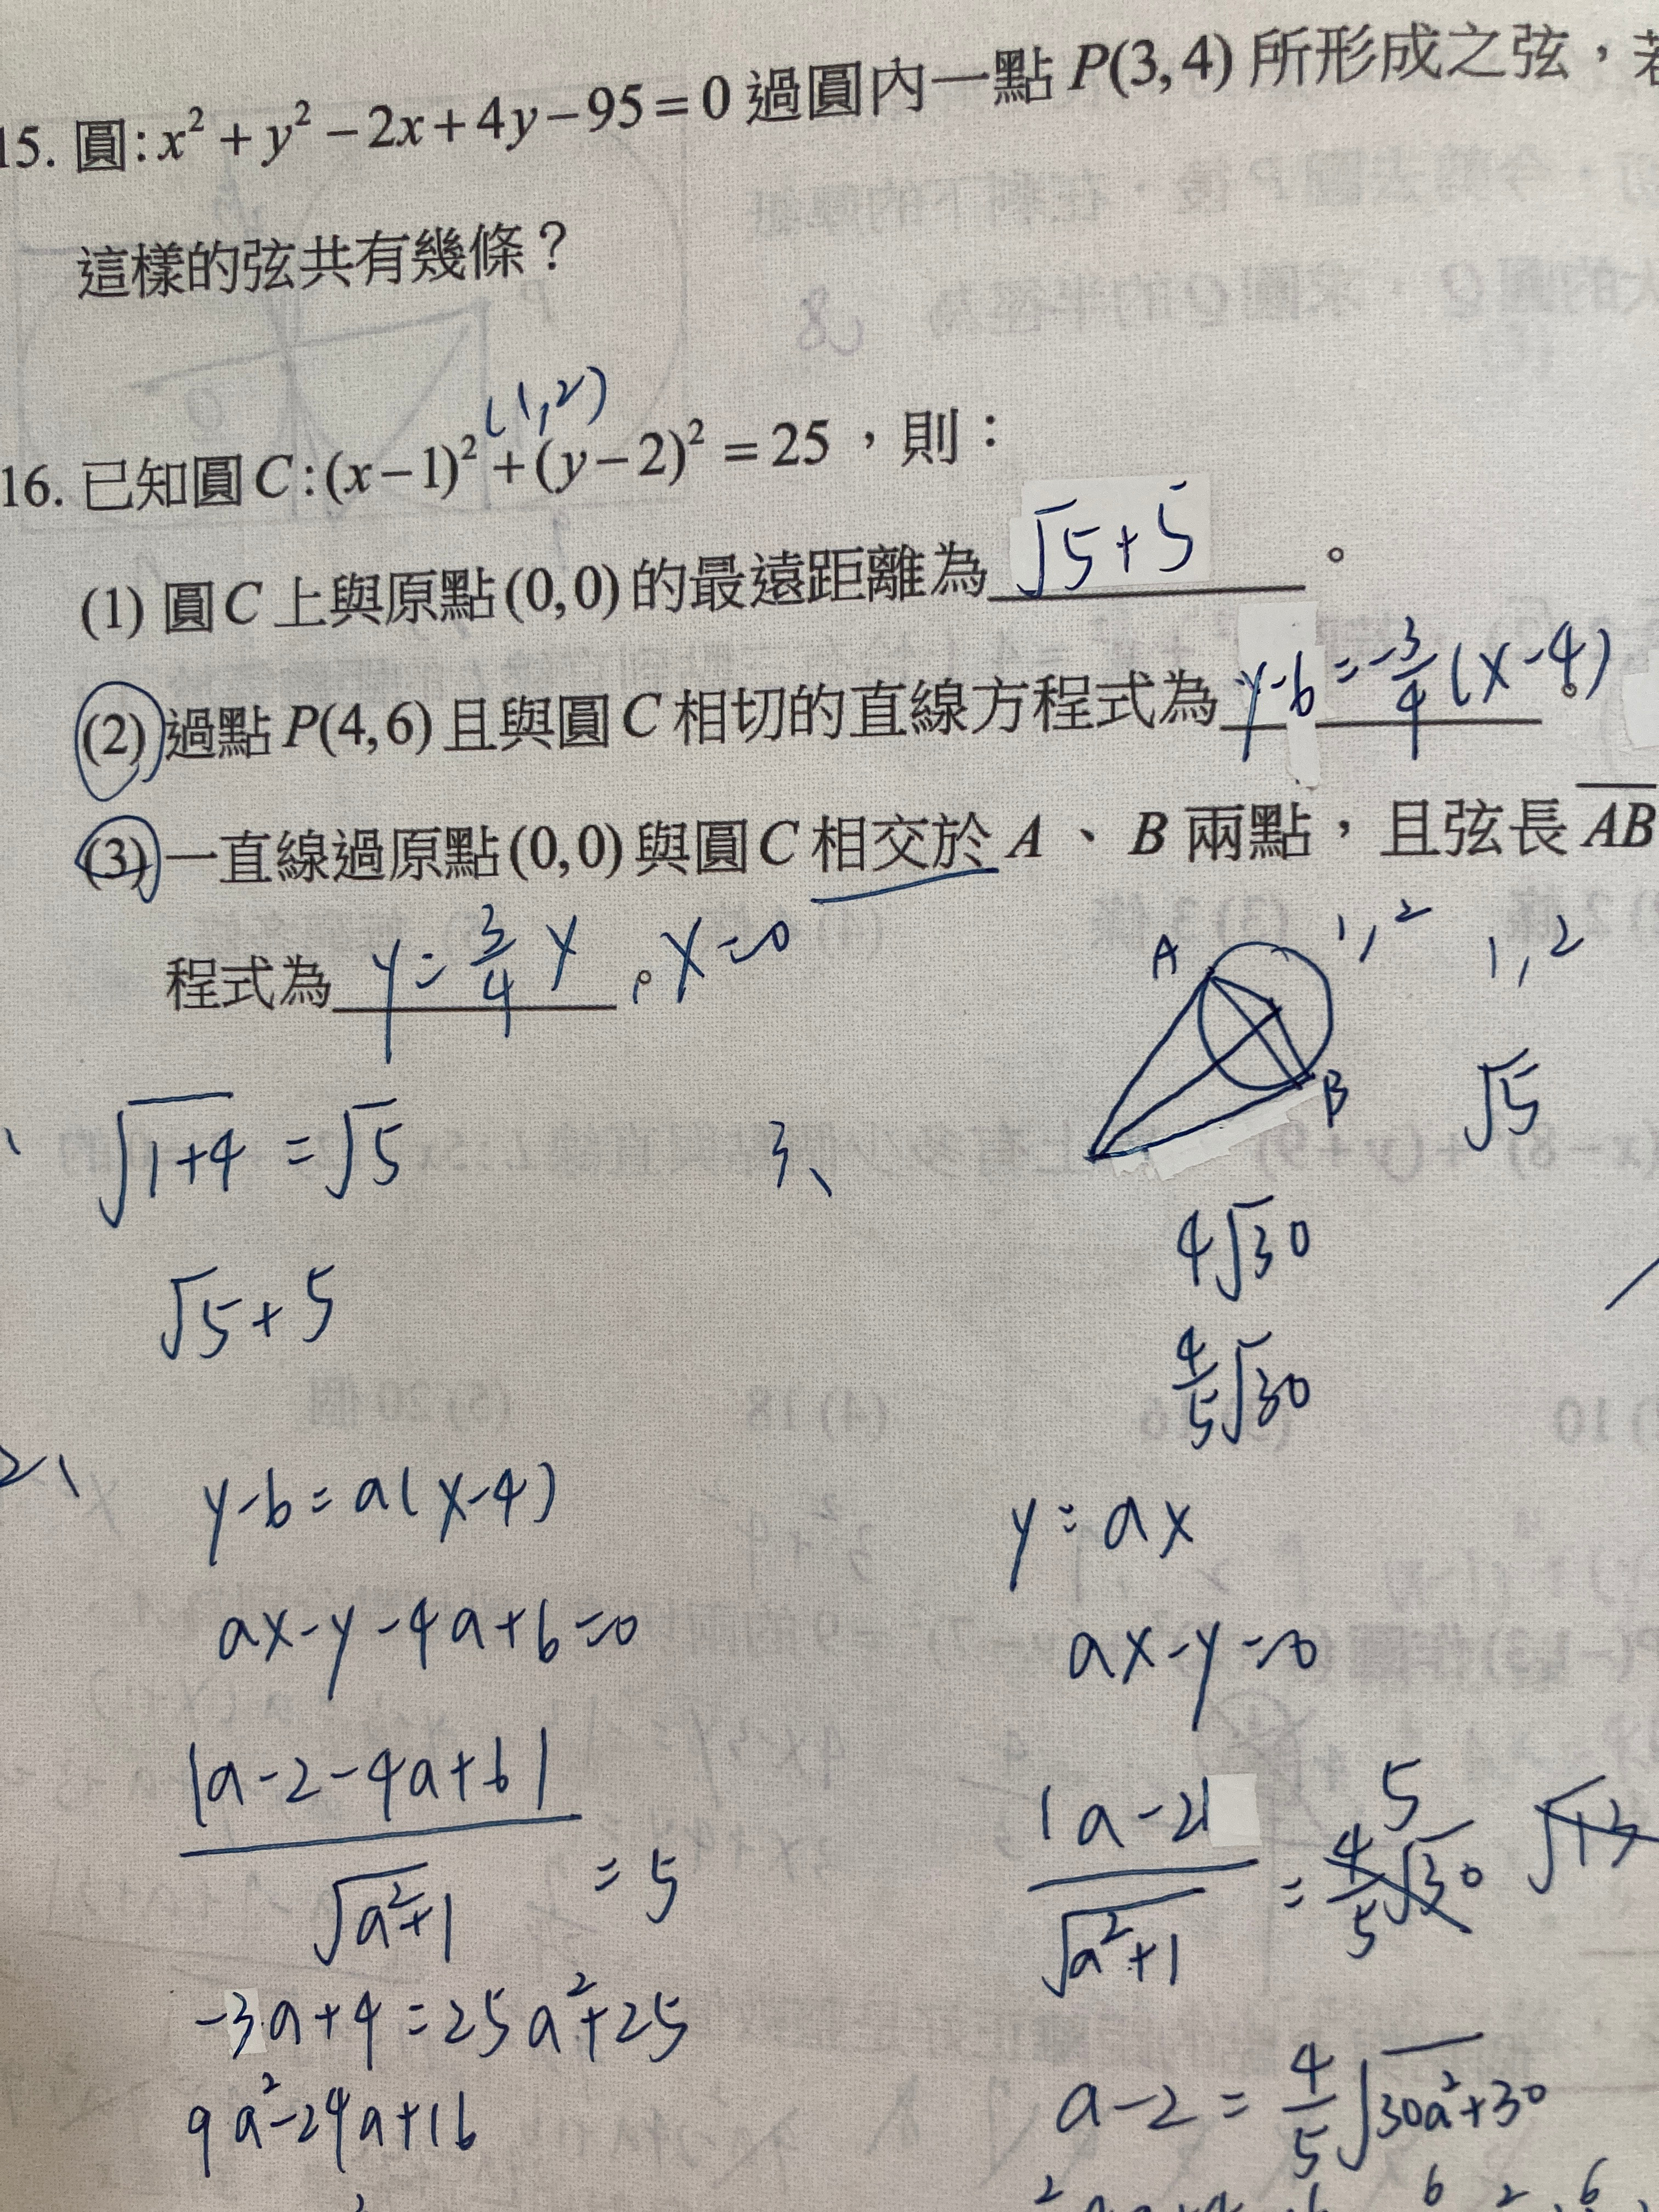 15. 圓:x²+y²−2x+4y−95=0 過圓內一點 P(3,4) 所形成之弦，若
這樣的弦共有幾條？
(1,2)
16. 已知圓C:(x−1)²+(y−2)²=25，則：
(1) 圓C上與原點(0,0)的最遠距離為 √5+5 。
(2) 過點P(4,6)且與圓C相切的直線方程式為 y-6=-3/4(x-4) 。
(3) 一直線過原點(0,0)與圓C相交於A、B兩點，且弦長AB
程式為 y=3/4x 。x=0
A 1,2 1,2
B √5
√(1+4)=√5
3、
√5+5
4√30
4/5√30
2、
y-6=a(x-4)
ax-y-4a+6=0
|a-2-4a+6|/√(a²+1) =5
-3a+4=25a²+25
9a²-24a+16
y=ax
ax-y=0
|a-2|/√(a²+1) = 4/5√30 5 √13
a-2=4/5√(30a²+30)